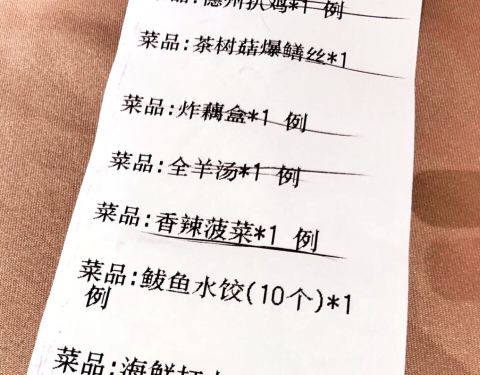 菜品:德州扒鸡*1 例
菜品:茶树菇爆鳝丝*1
菜品:炸藕盒*1 例
菜品:全羊汤*1 例
菜品:香辣菠菜*1 例
菜品:鲅鱼水饺(10个)*1
例
菜品:海鲜